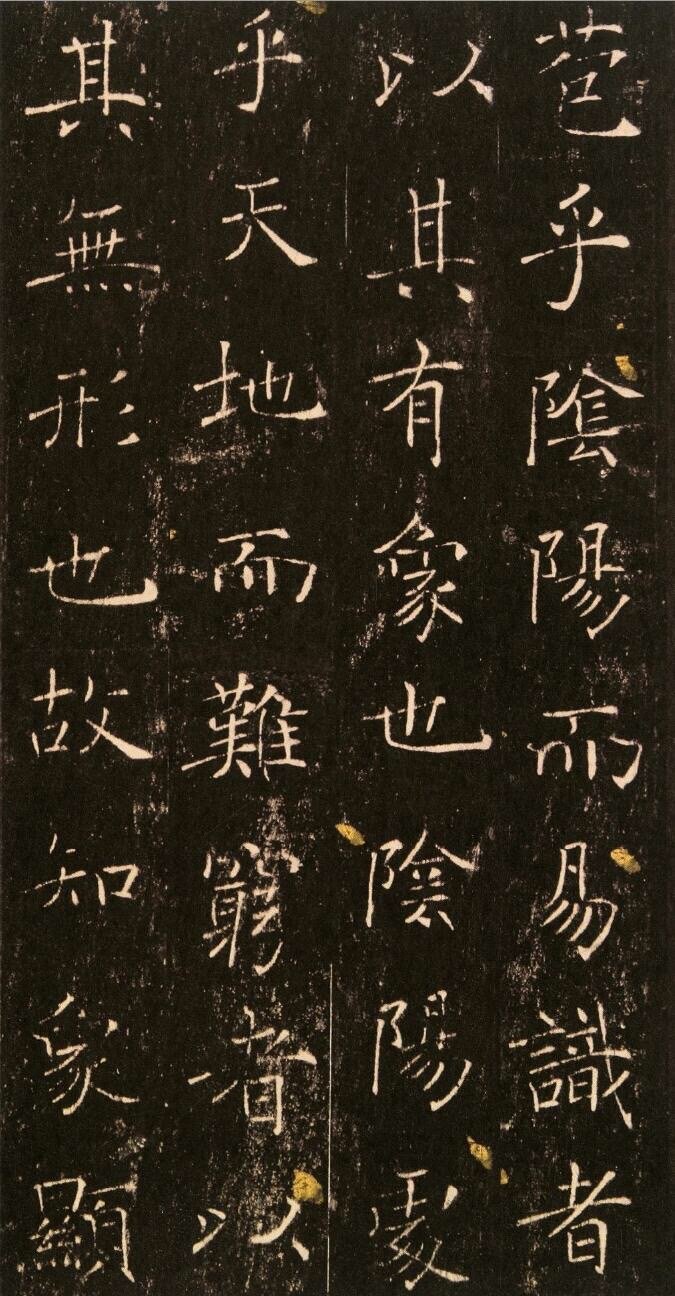 苞乎陰陽而易識者
以其有象也陰陽處
乎天地而難窮者以
其無形也故知象顯